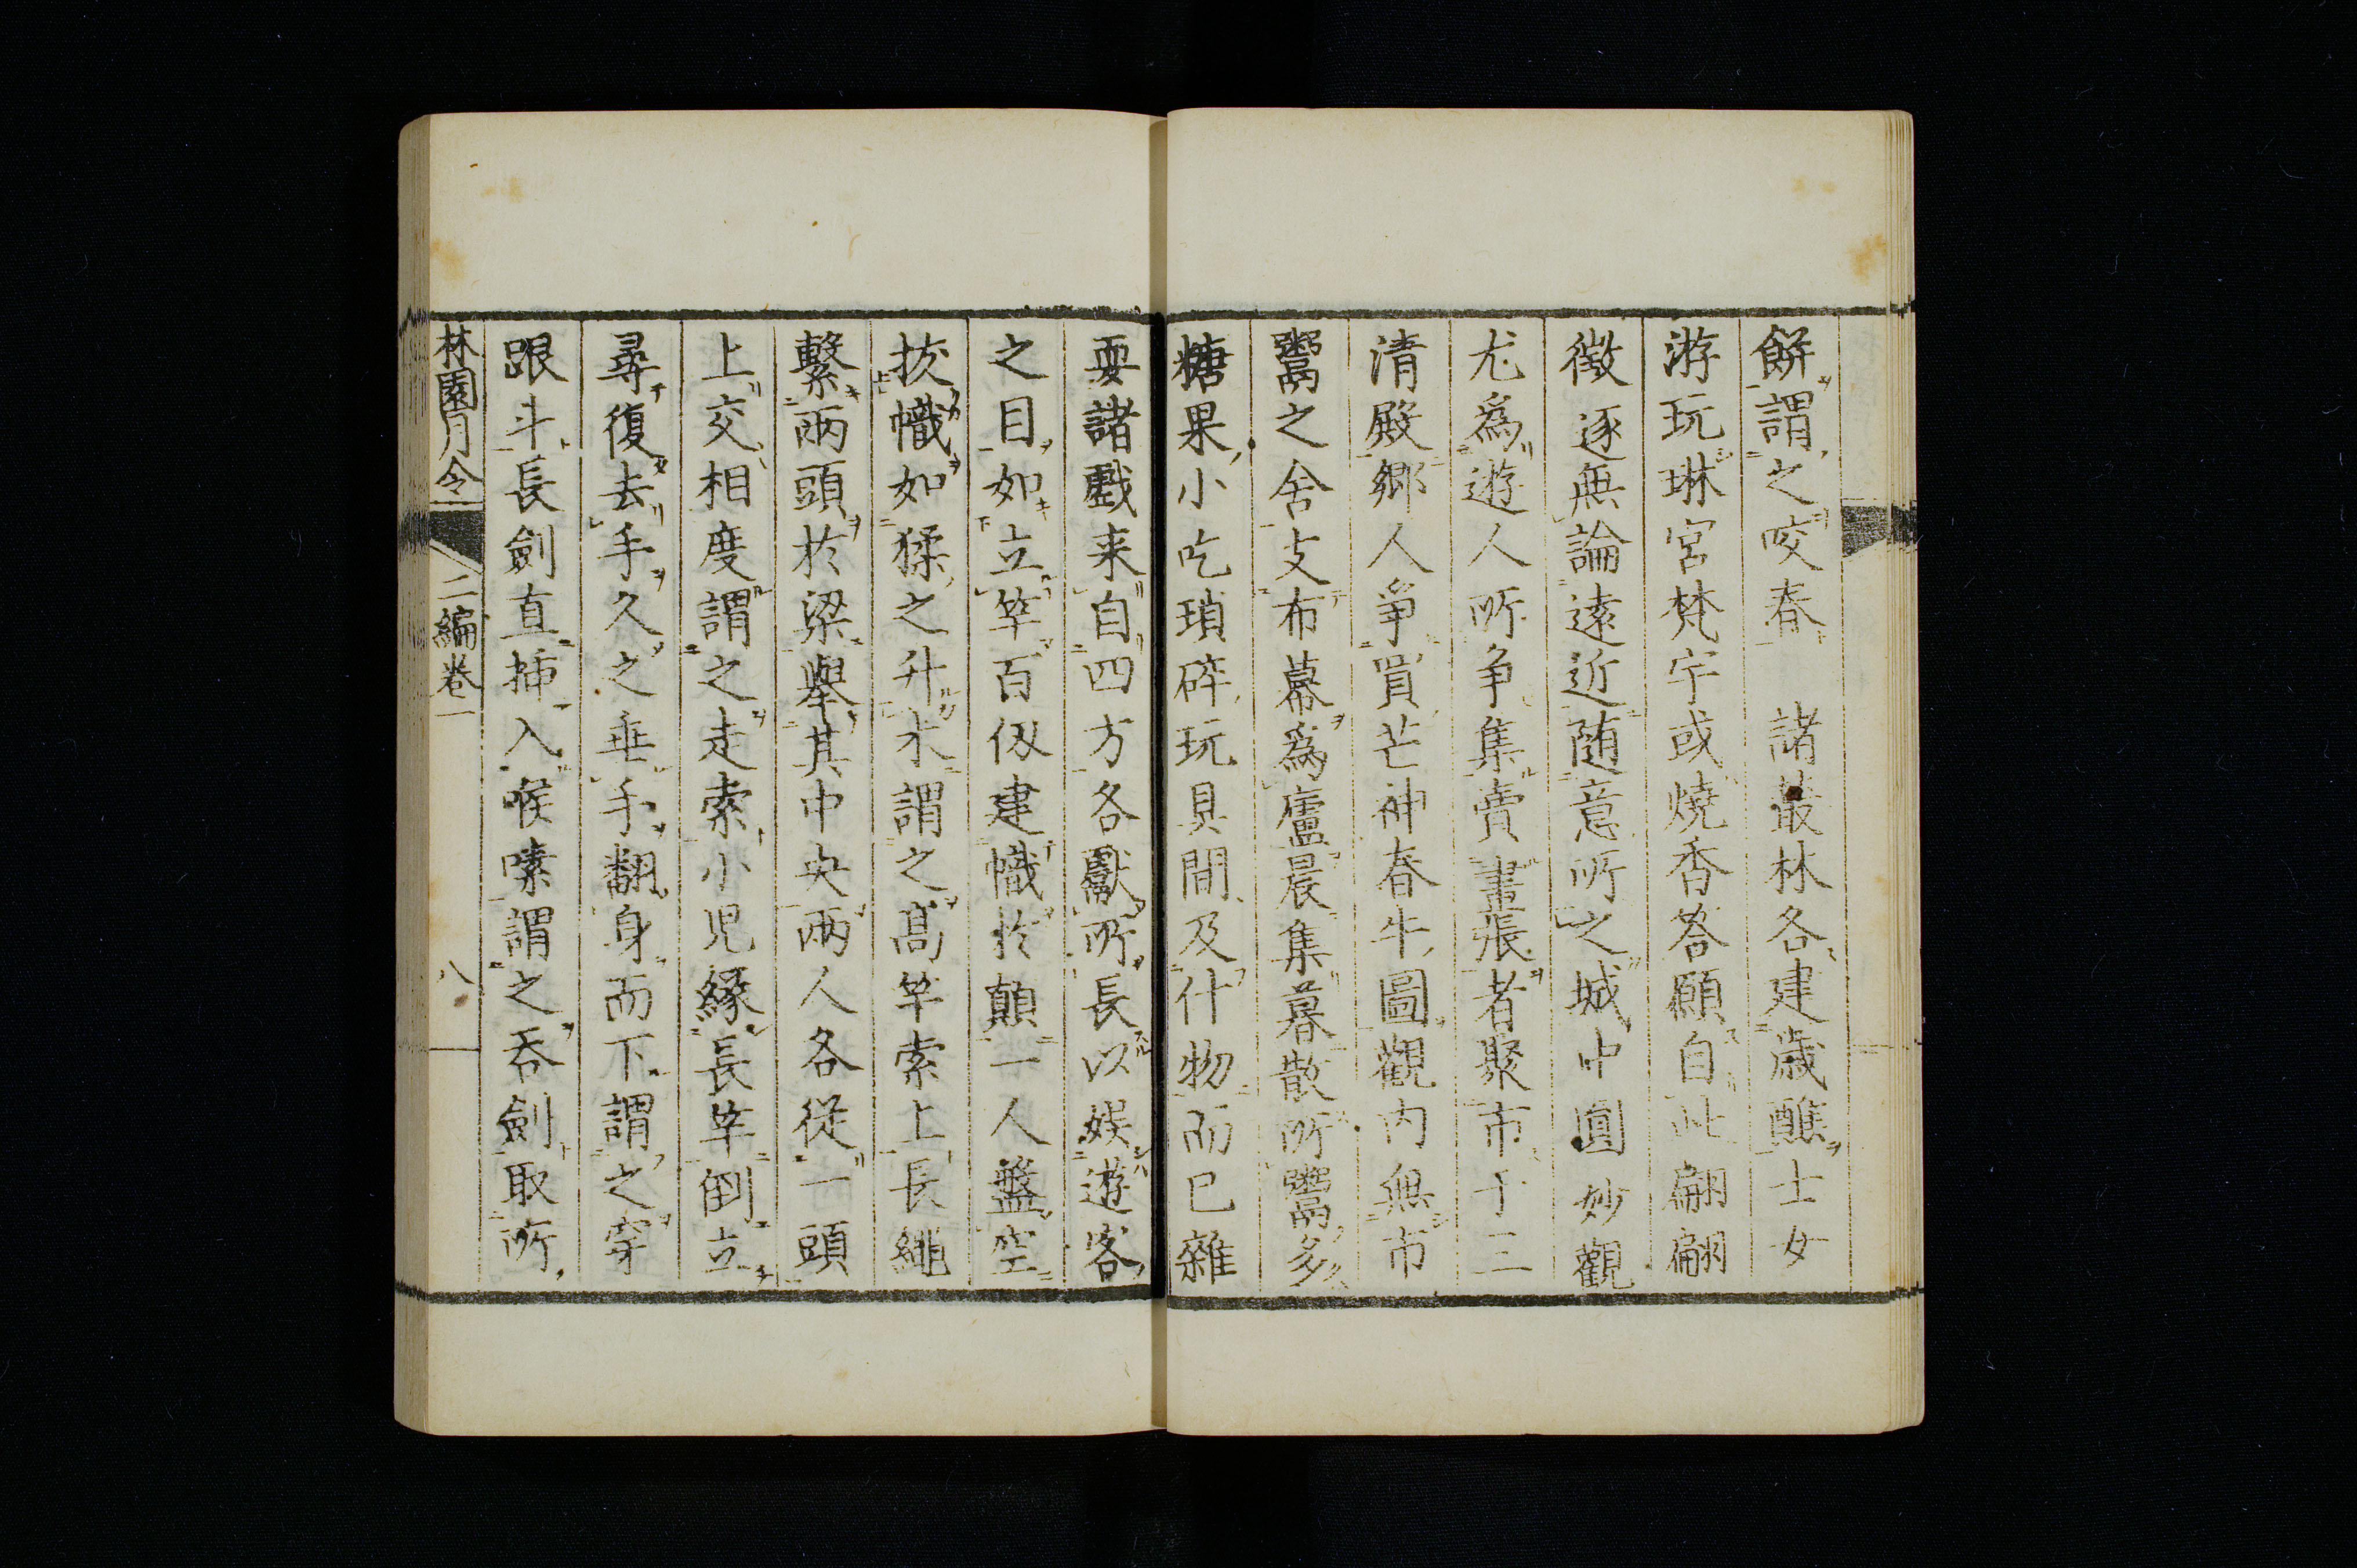 餅謂之咬春　諸叢林各建歳醮士女
游玩琳宮梵宇或燒香答願自此翩翩
徵逐無論遠近随意所之城中圓妙觀
尤爲遊人所争集賣畫張者聚市于三
清殿鄉人爭買芒神春牛圖觀内無市
鬻之舍支布幕爲廬晨集暮散所鬻多
糖果小吃瑣碎玩具間及什物而已雜
耍諸戲来自四方各獻所長以娱遊客
之目如立竿百仭建幟於顛一人盤空
拔幟如猱之升木謂之高竿索上長繩
繫兩頭於梁舉其中央兩人各從一頭
上交相度謂之走索小児緣長竿倒立
尋復去手久之垂手翻身而下謂之穿
跟斗長劍直揷入喉嗉謂之吞劍取所
林園月令　二編巻一　八